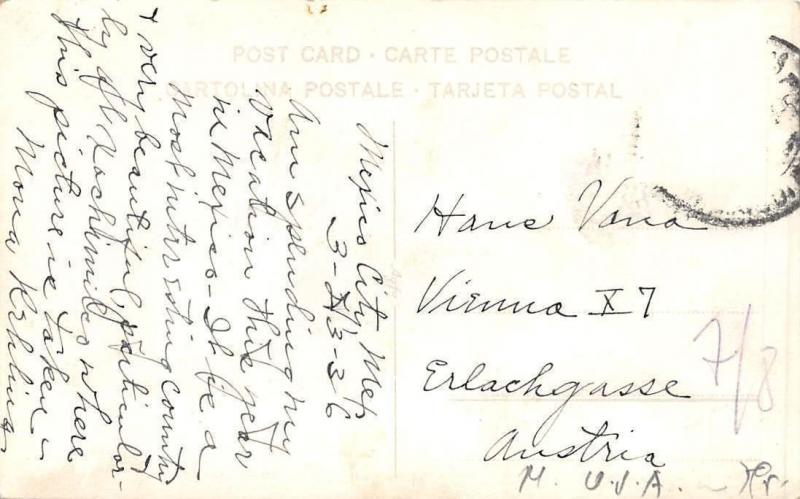 POST CARD · CARTE POSTALE
CARTOLINA POSTALE · TARJETA POSTAL
Mexico City Mex
Am spending my
vacation this year
in Mexico - It is a
most interesting country
& very beautiful, particular-
ly of Xochimilco where
this picture is taken -
Mona
Hans Vana
Vienna X 7
Erlachgasse
Austria
7/8
M. U.S.A.